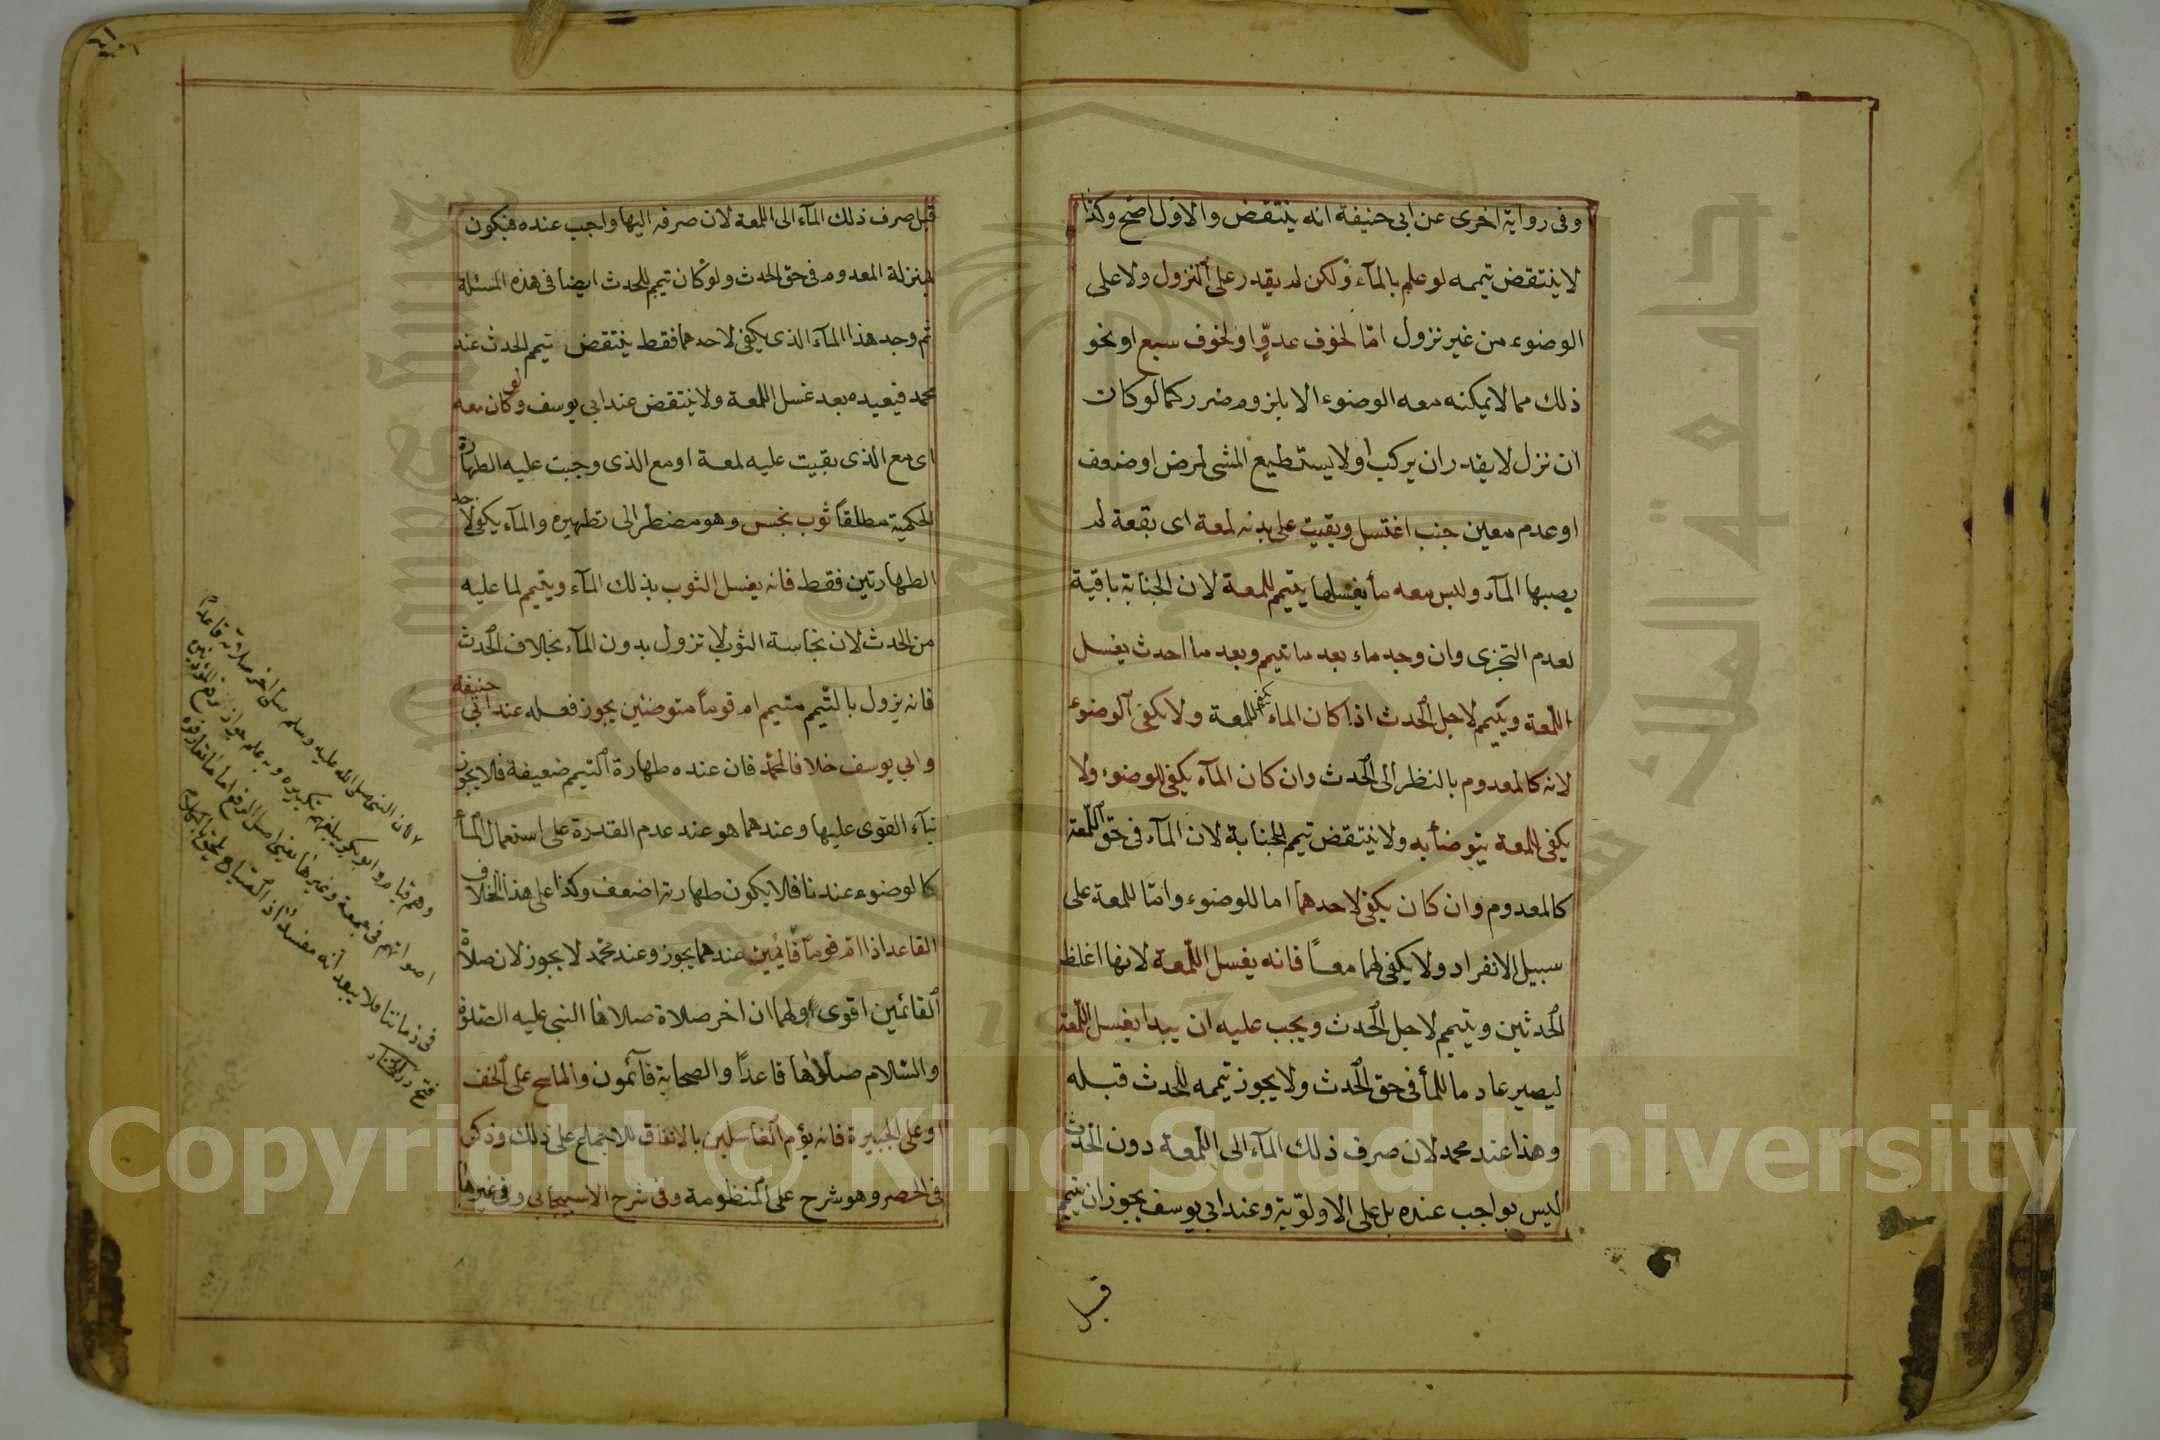 وفى رواية اخرى عن ابى حنيفة انه ينتقض والاول اصح وكذا
لا ينتقض تيممه لو علم بالمآء ولكن لم يقدر على النزول ولا على
الوضوء من غير نزول امّا لخوف عدوٍّ او لخوف سبع او نحو
ذلك مما لا يمكنه معه الوضوء الا بلزوم ضرر كما لو كان
ان نزل لا يقدر ان يركب او لا يستطيع المشى لمرض او ضعف
او عدم معين جنب اغتسل وبقيت على بدنه لمعة اى بقعة لم
يصبها المآء وليس معه ما يغسلها يتيمم للمعة لان الجنابة باقية
لعدم التجزى وان وجد ماء بعد ما تيمم وبعد ما احدث يغسل
اللمعة ويتيمم لاجل الحدث اذا كان الماء يكفى للمعة ولا يكفى الوضوء
لانه كالمعدوم بالنظر الى الحدث وان كان المآء يكفى للوضوء ولا
يكفى للمعة يتوضأ به ولا ينتقض تيمم الجنابة لان المآء فى حق اللمعة
كالمعدوم وان كان يكفى لاحدهما اما للوضوء وامّا للمعة على
سبيل الانفراد ولا يكفى لهما معاً فانه يغسل اللّمعة لانها اغلظ
الحدثين ويتيمم لاجل الحدث ويجب عليه ان يبدا بغسل اللّمعة
ليصير عادما للمأ فى حق الحدث ولا يجوز تيممه للحدث قبله
وهذا عند محمد لان صرف ذلك المآء الى اللمعة دون الحدث
ليس بواجب عنده بل على الاولوّية وعند ابى يوسف يجوز ان يتيمم
قبل
قبل صرف ذلك المآء الى اللمعة لان صرفه اليها واجب عنده فيكون
بمنزلة المعدوم فى حق الحدث ولو كان تيمم للحدث ايضا فى هذه المسئلة
ثم وجد هذا المآء الذى يكفى لاحدهما فقط ينتقض تيمم الحدث عند
محمد فيعيده بعد غسل اللمعة ولا ينتقض عند ابى يوسف ولو كان معه
اى مع الذى بقيت عليه لمعة او مع الذى وجبت عليه الطهارة
الحكمية مطلقاً ثوب نجس وهو مضطر الى تطهيره والمآء يكفى لاحد
الطهارتين فقط فانه يغسل الثوب بذلك المآء ويتيمم لما عليه
من الحدث لان نجاسة الثوب لا تزول بدون المآء بخلاف الحدث
فانه يزول بالتيمم متيمم ام قوماً متوضئين يجوز فعله عند ابى حنيفة
وابى يوسف خلافا لمحمّد فان عنده طهارة التيمم ضعيفة فلا يجوز
بنآء القوى عليها وعندهما هو عند عدم القدرة على استعمال المآء
كالوضوء عندنا فلا يكون طهارته اضعف وكذا على هذا الخلاف
القاعد اذا امّ قوماً قائمين عندهما يجوز وعند محمّد لا يجوز لان صلاة
القائمين اقوى ولهما ان اخر صلاة صلاها النبى عليه الصّلوة
والسّلام صلّاها قاعدًا والصحابة قآئمون والماسح على الخف
او على الجبيرة فانه يؤم الغاسلين بالاتفاق للاجماع على ذلك وذكر
فى الحصر وهو شرح على المنظومة وفى شرح الاسبيجابى وفى غيرها
لان النبى صلى الله عليه وسلم صلى اخر صلاته قاعدا
وهم قيام وابو بكر يبلغهم تكبيره وبه علم جواز رفع المؤذنين
اصواتهم فى جمعة وغيرها يعنى اصل الرفع اما ما تعارفوه
فى زماننا فلا يبعد انه مفسد اذ الصياح ملحق بالكلام
فتح در المختار
Copyright © King Saud University
جامعة الملك سعود
1957